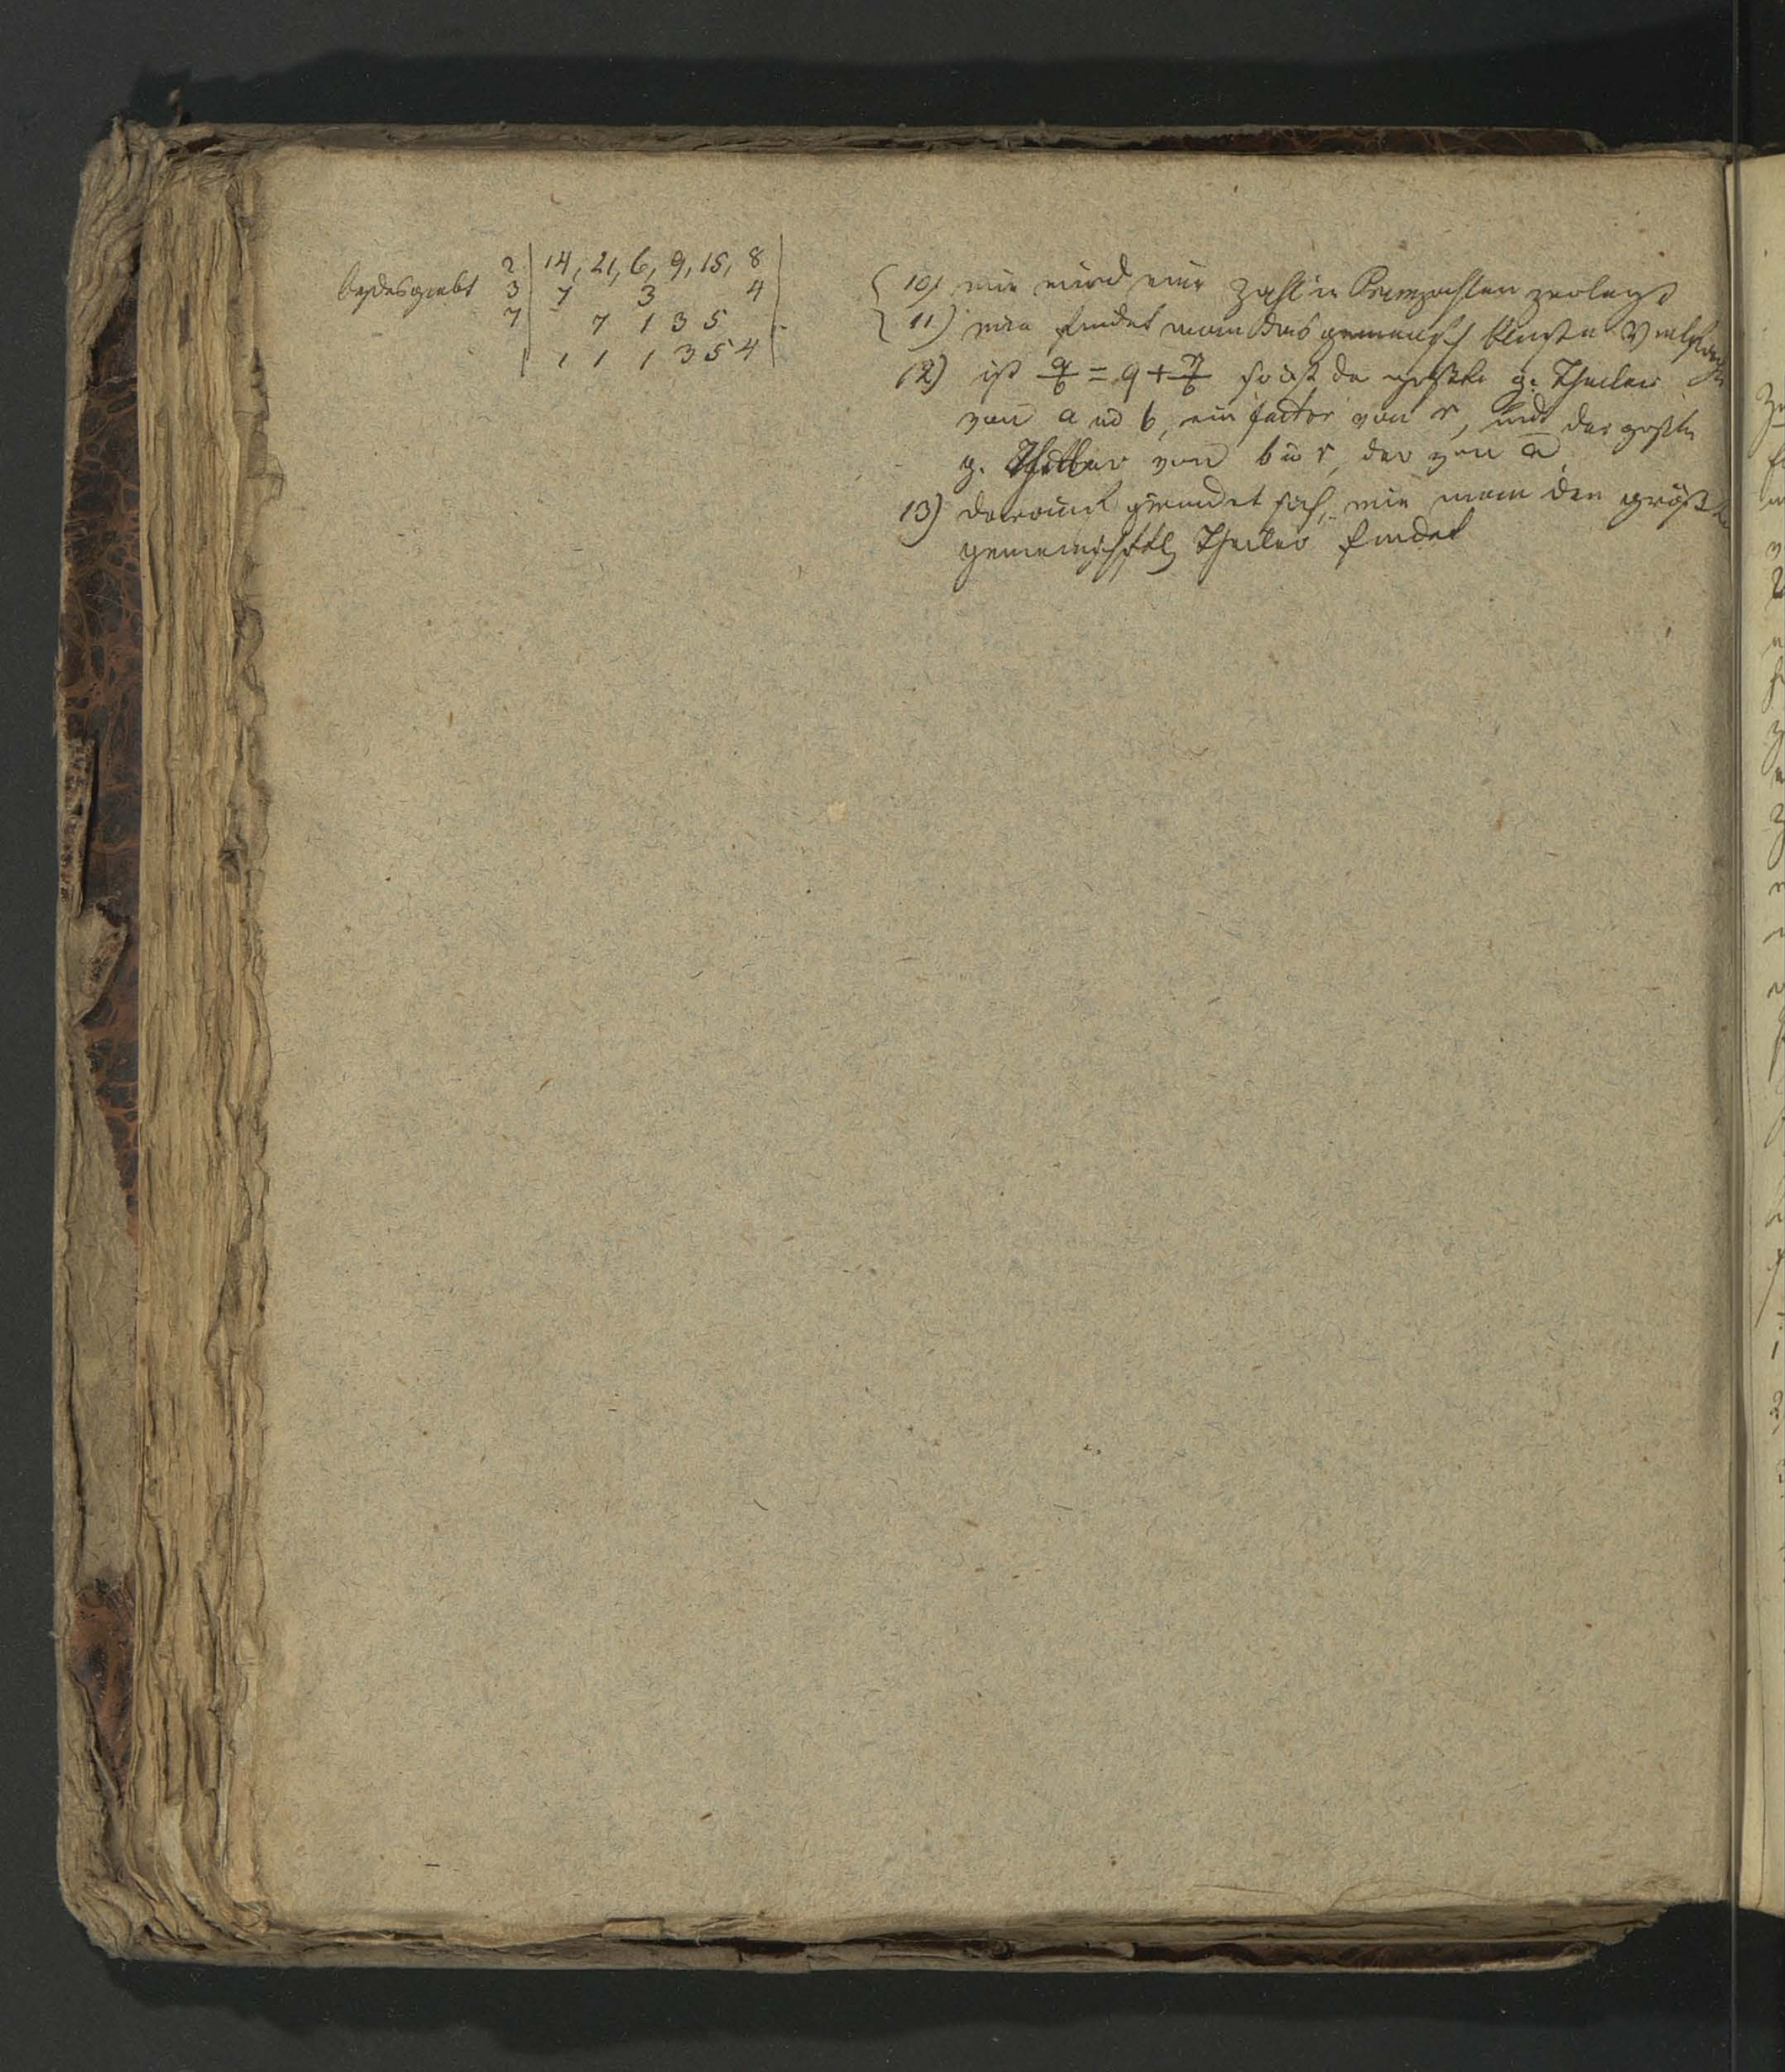 2 | 14, 21, 6, 9, 15, 8 |
3 | 7 3 4
7 | 7 1 3 5
1 1 1 3 5 4
10) wie wird eine Zahl in Primzahlen zerlegt
11) wie findet man das gemeinsch kleinste Vielfache
12) ist a/b = q + r/b so ist der größte g. Theiler
von a u b, ein factor von r, und der größte
g. Theiler von b u r, der von a
13) darauf gründet sich, wie man den größten
gemeinschftl Theiler findet